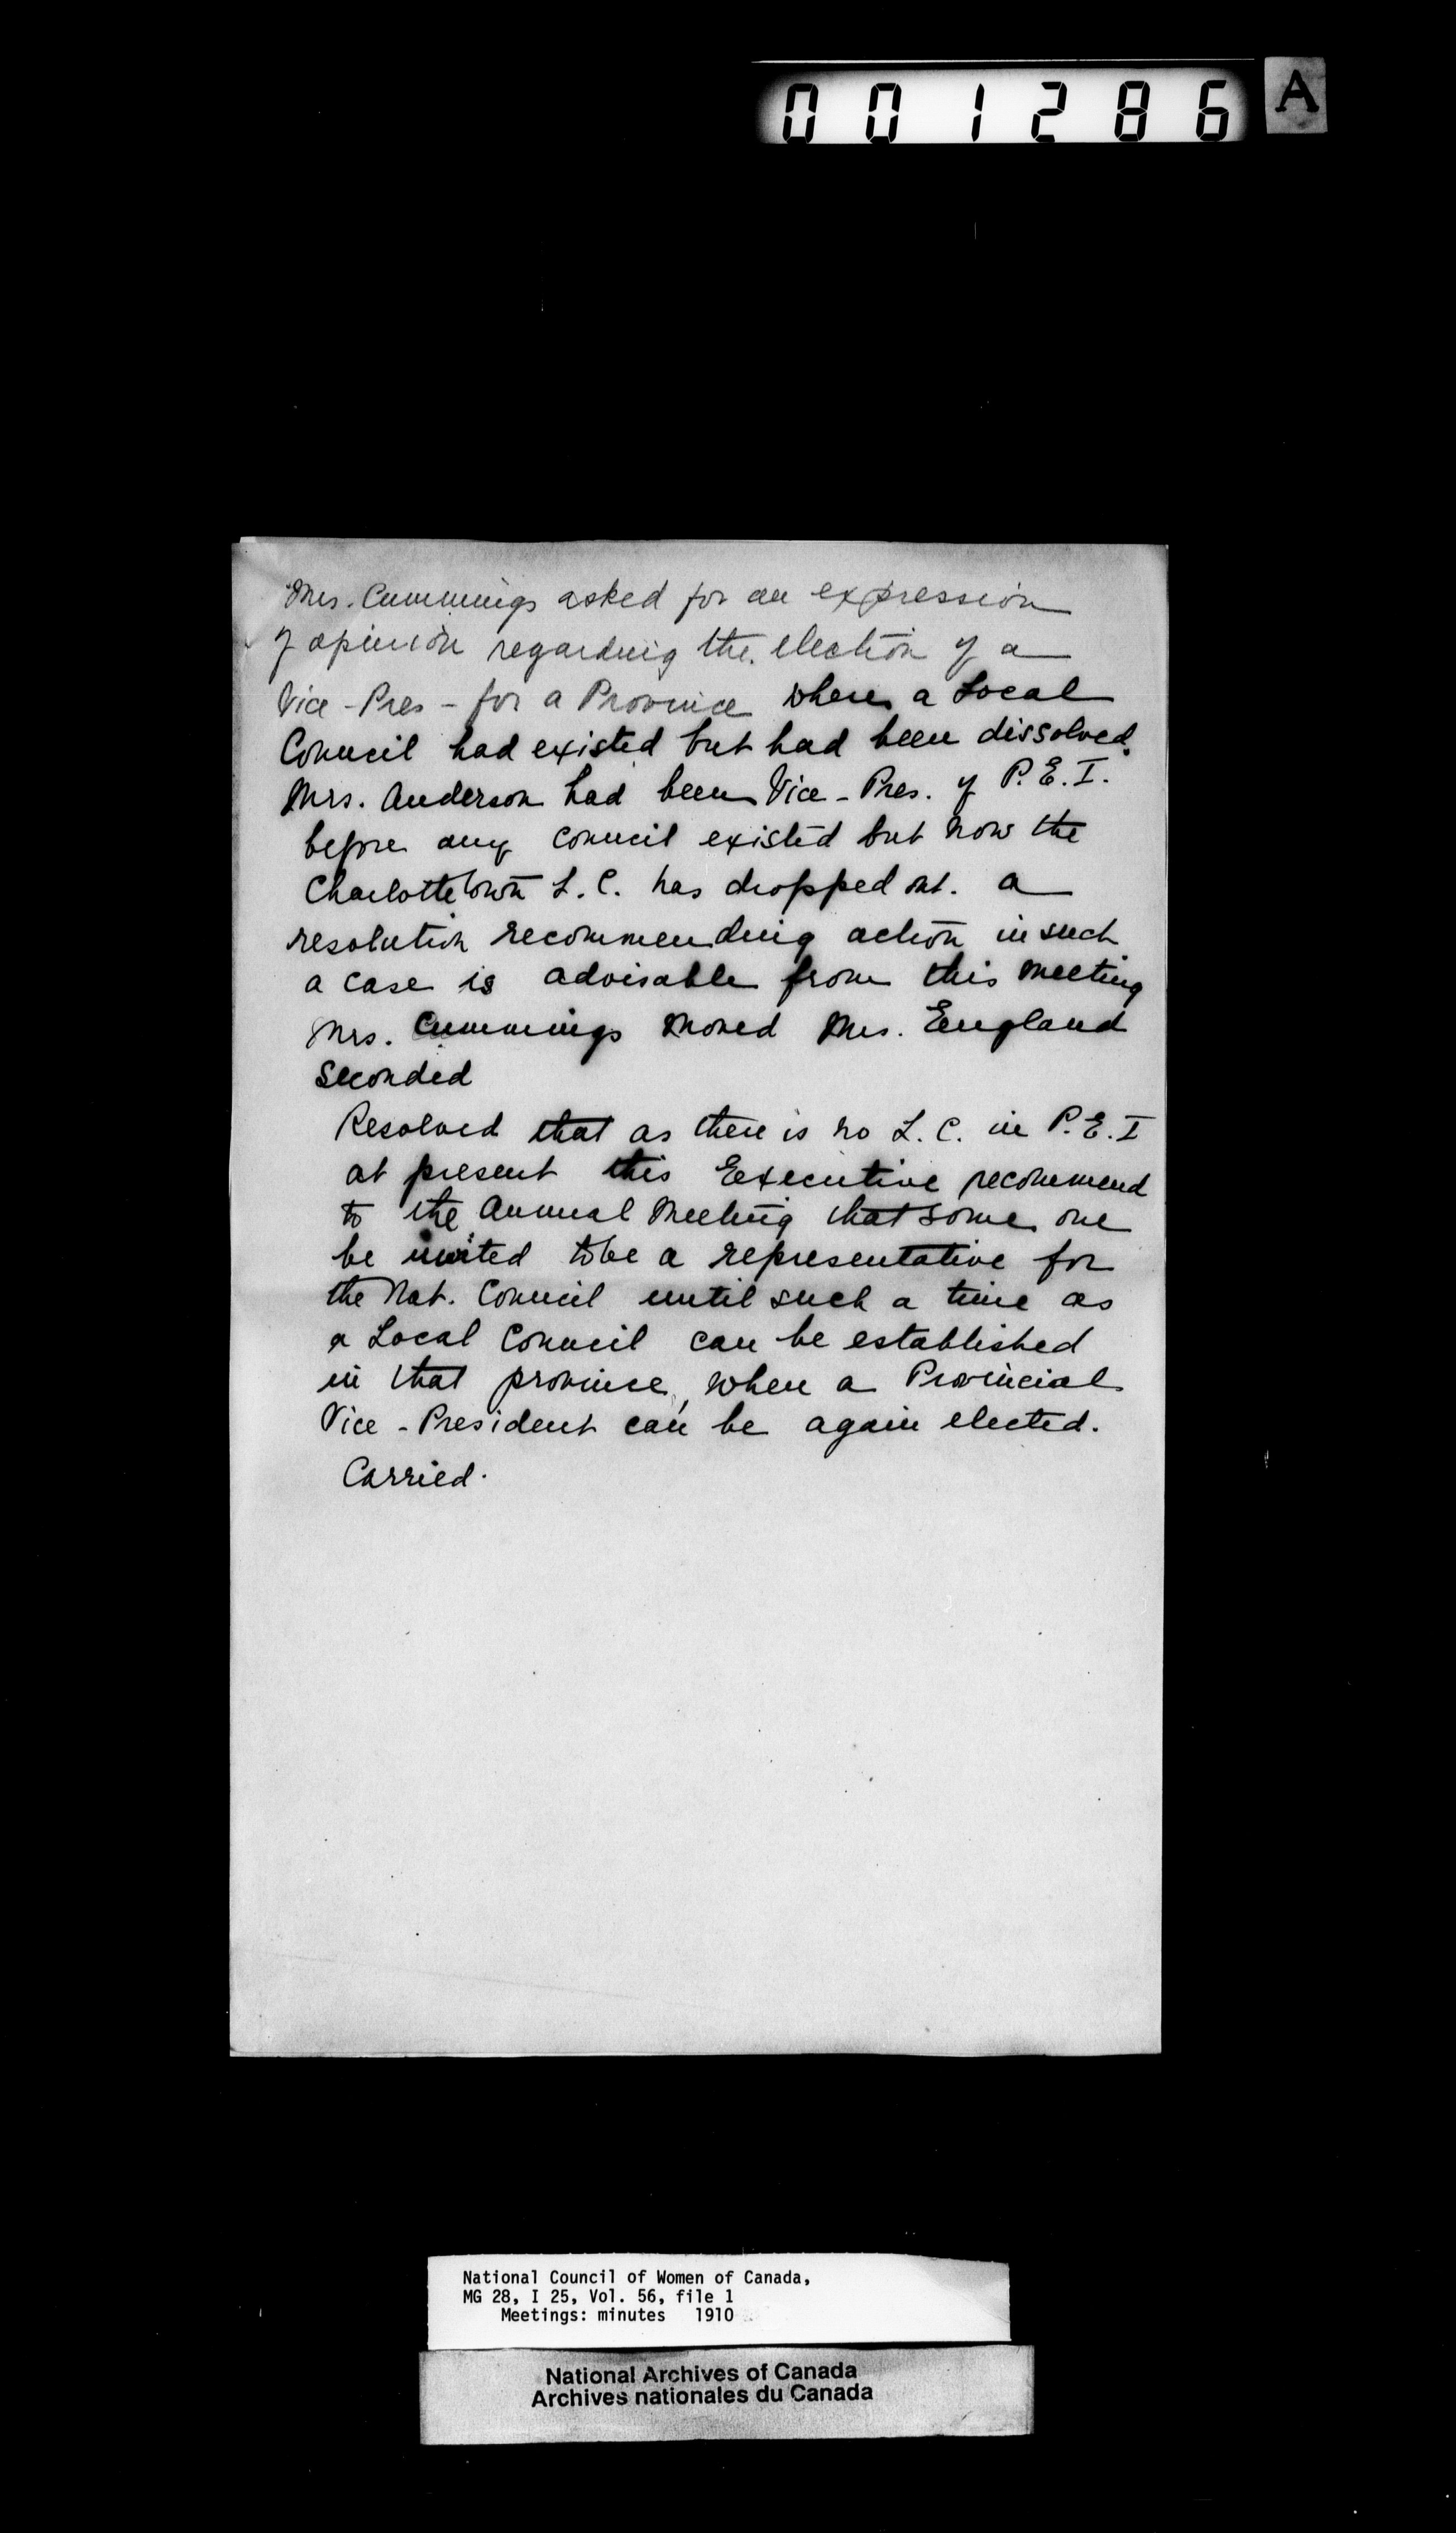 001286 A
Mrs. Cummings asked for an expression
of opinion regarding the election of a
Vice-Pres - for a Province where a Local
Council had existed but had been dissolved.
Mrs. Anderson had been Vice-Pres. of P.E.I.
before any Council existed but now the
Charlottetown L.C. has dropped out. a
resolution recommending action in such
a case is advisable from this meeting
Mrs. Cummings moved Mrs. England
Seconded
Resolved that as there is no L.C. in P.E.I
at present this Executive recommend
to the Annual Meeting that some one
be invited to be a representative for
the Nat. Council until such a time as
a Local Council can be established
in that province, when a Provincial
Vice-President can be again elected.
Carried.
National Council of Women of Canada,
MG 28, I 25, Vol. 56, file 1
Meetings: minutes 1910
National Archives of Canada
Archives nationales du Canada